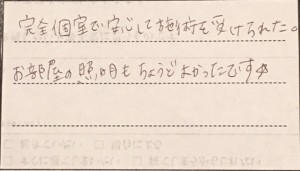 完全個室で安心して施術を受けられた。
お部屋の照明もちょうどよかったです